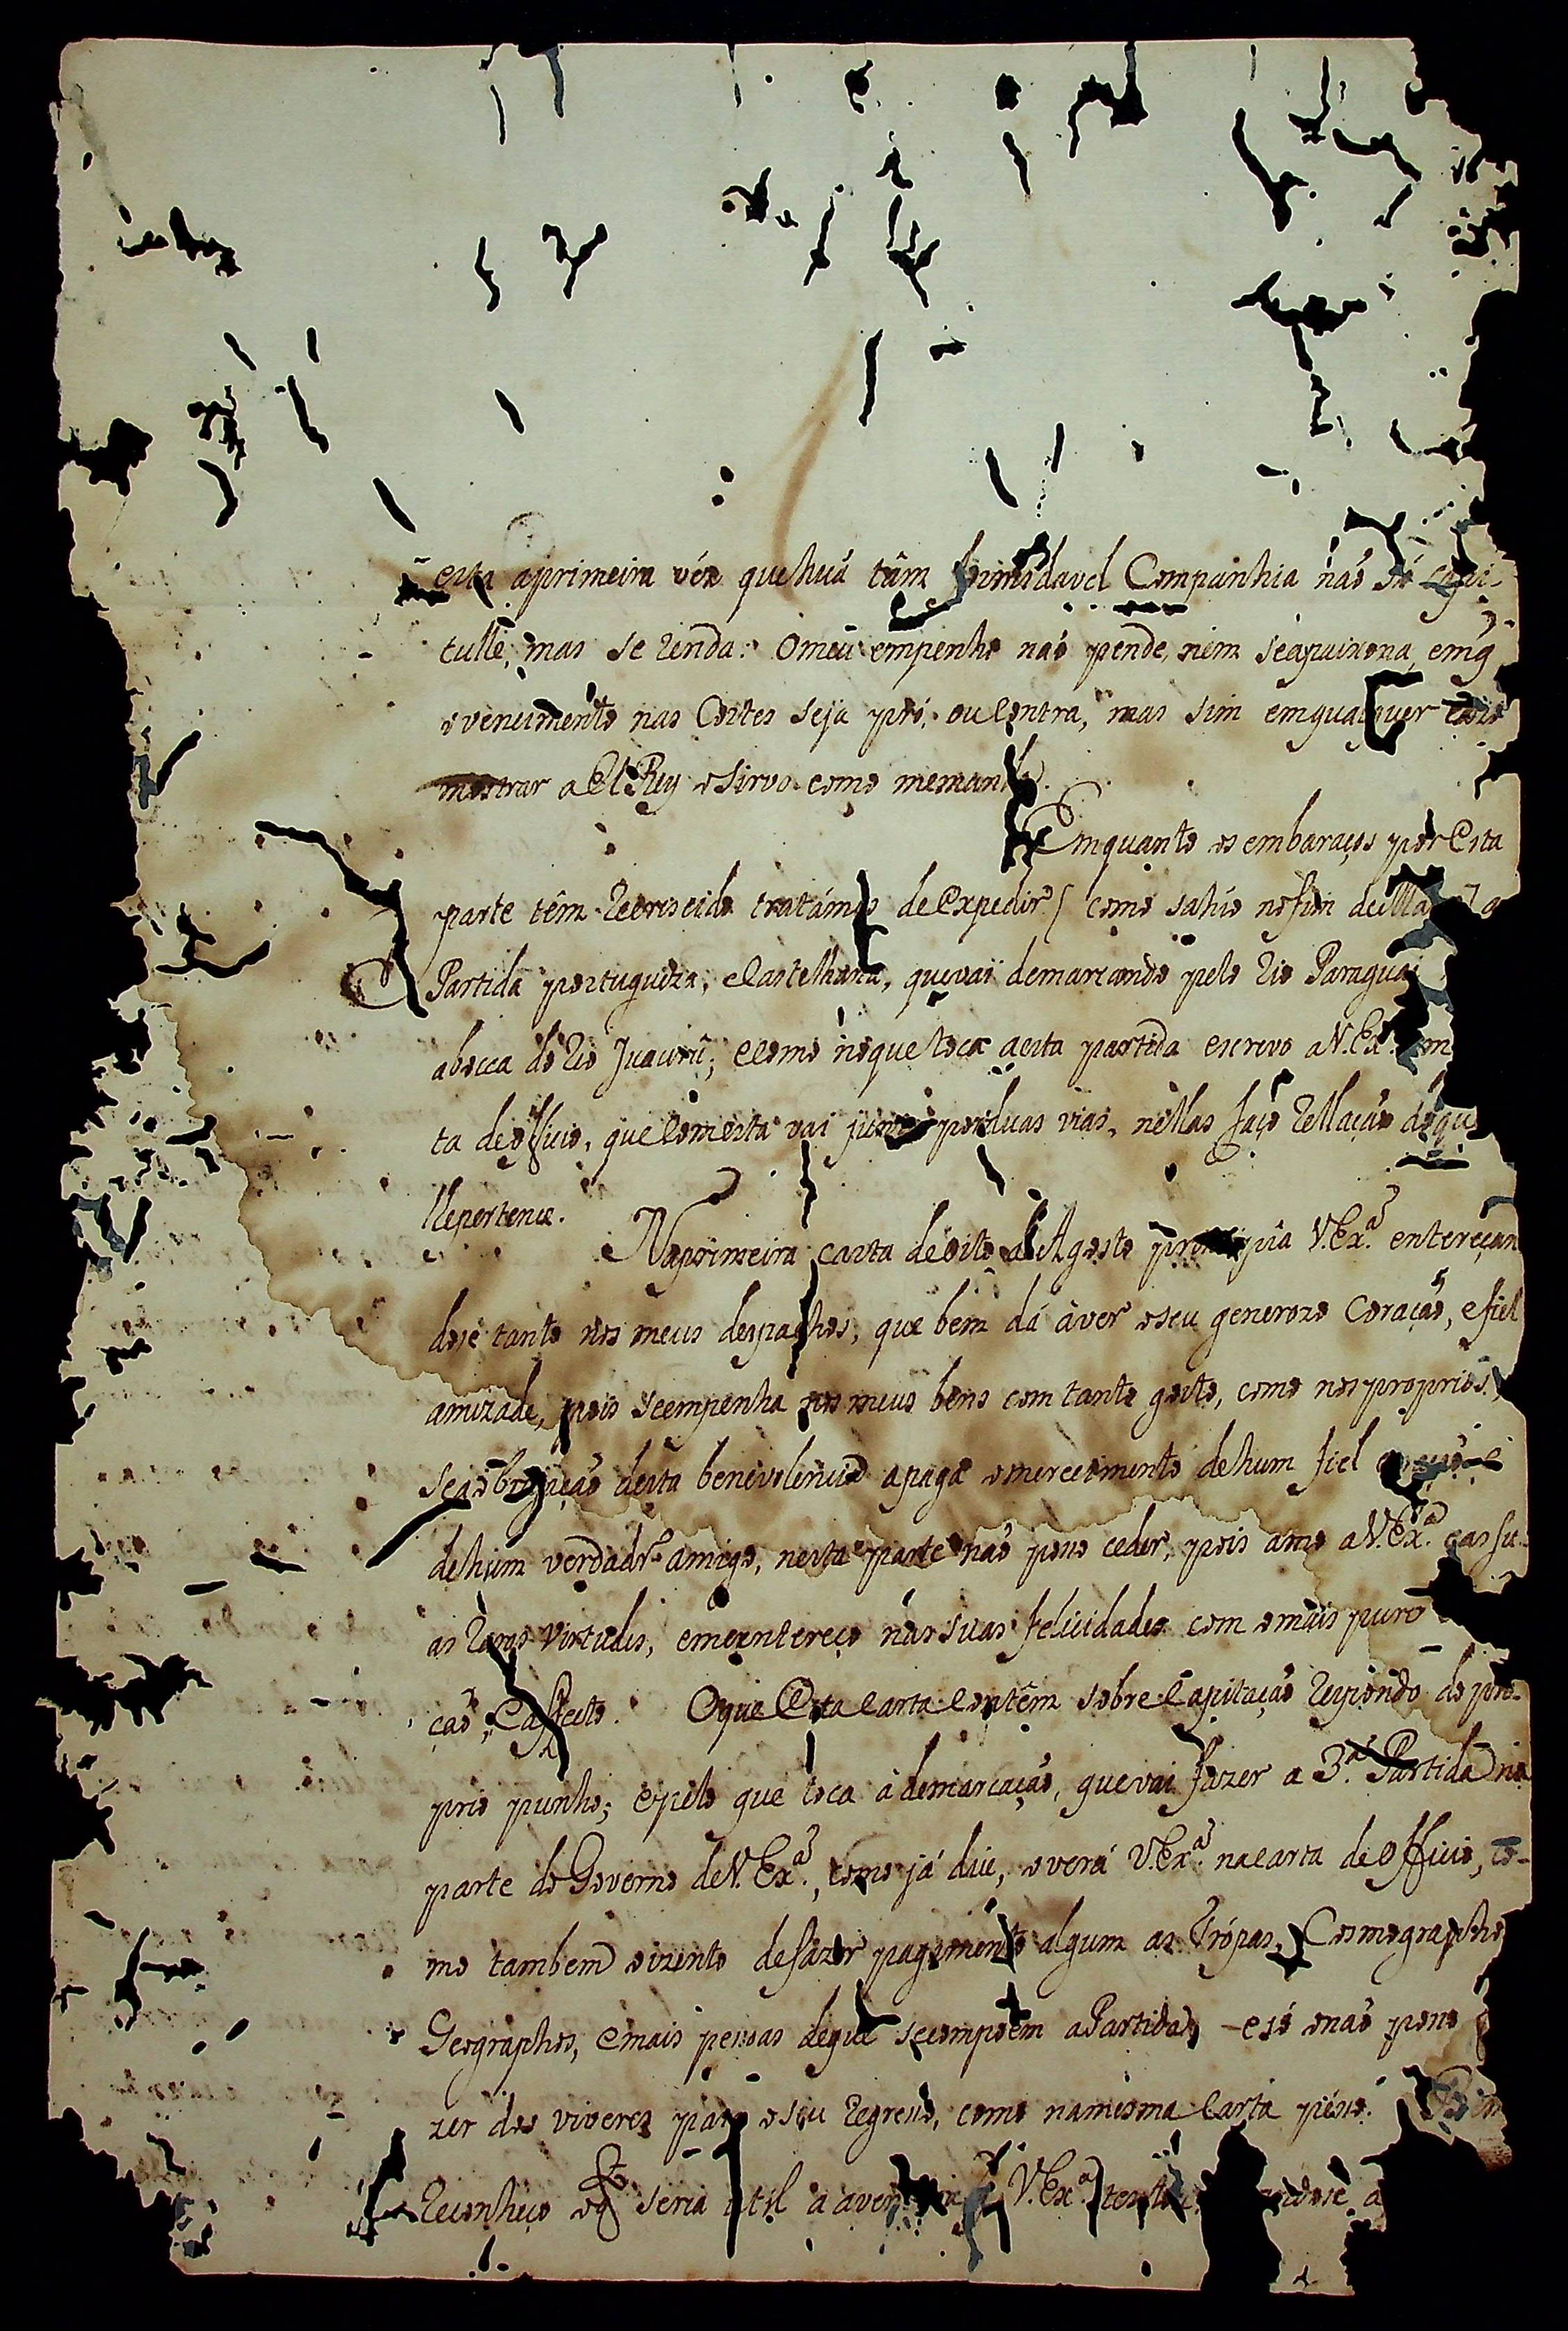 esta aprimeira véz que huã tâm formidavel Companhia não só capi-
tulle, mas se renda. O meu empenho não pende, nem se apaixona, em q̃
o vencimento nas Cortes seja pró, ou contra, mas sim em qualquer
mostrar a El Rey o sirvo como memanda.
Emquanto os embaraços por Esta
parte têm recrescido tratámos de Expedir ( como sahio no fim de
Partida portugueza, e Castelhana, que vai demarcando pelo rio Paraguai
abocca do rio Juaurû; e como no que toca a esta partida escrevo a V. Exª.
ta de officio, que com esta vai junto por duas vias, nellas faço rellação do qu
lhe pertence.
Na primeira carta de oito de Agosto principia V. Exª. entereçan
dose tanto nos meus despachos, que bem dá à ver o seu generozo Coração, e fiel
amizade, pois se empenha nos meus bens com tanto gosto, como nos proprios,
se a obrigação desta benevolencia apaga o mereccimento de hum fiel
de hum verdadrº. amigo, nesta parte não posso ceder, pois amo a V. Exª. e as su-
as raras virtudes, e me entereço nas suas felicidades com o mais puro
ção, e affecto. O que Esta Carta Contêm sobre Capitação respondo do pro-
prio punho; e pelo que toca à demarcação, que vai fazer a 3ª. Partida na
parte do Governo de V. Exª., como já disse, o verá V. Exª. na carta de Officio, co-
mo tambem o izento de fazer pagamento algum as Trópas, Cosmographo
Geographos, e mais pessoas de que se compoem a Partida, e só o não posso
zer dos viveres para o seu regresso, como na mesma Carta pésso.
Reconheço o q̃ seria util a V. Exª.